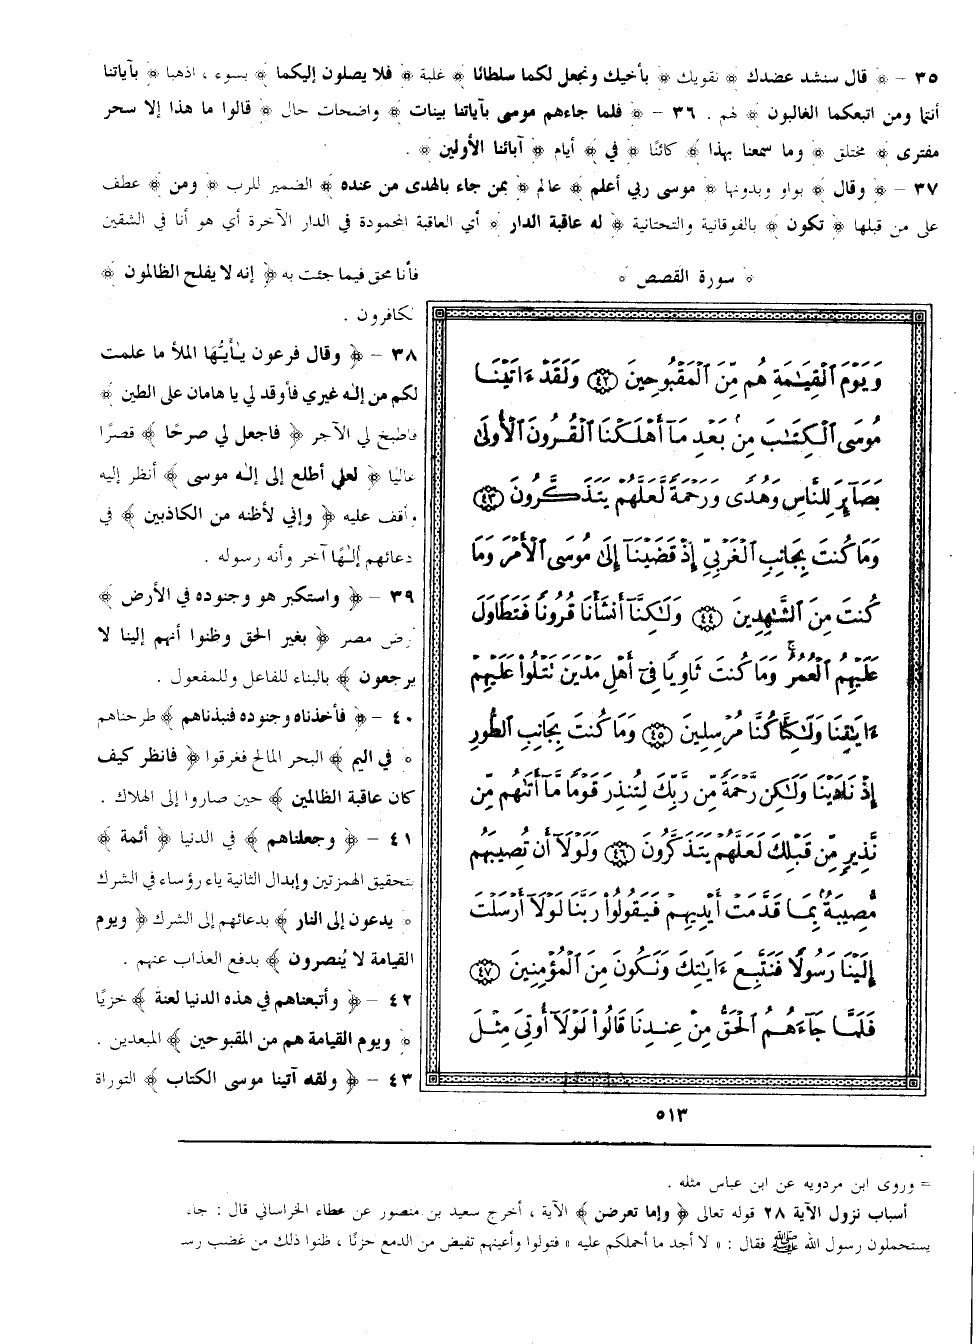 ٣٥ – ﴿ قال سنشد عضدك ﴾ نقويك ﴿ بأخيك ونجعل لكما سلطانًا ﴾ غلبة ﴿ فلا يصلون إليكما ﴾ بسوء ، اذهبا ﴿ بآياتنا
أنتما ومن اتبعكما الغالبون ﴾ لهم . ٣٦ – ﴿ فلما جاءهم موسى بآياتنا بينات ﴾ واضحات حال ﴿ قالوا ما هذا إلا سحر
مفترى ﴾ مختلق ﴿ وما سمعنا بهذا ﴾ كائنًا ﴿ في ﴾ أيام ﴿ آبائنا الأولين ﴾ .
٣٧ – ﴿ وقال ﴾ بواو وبدونها ﴿ موسى ربي أعلم ﴾ عالم ﴿ بمن جاء بالهدى من عنده ﴾ الضمير للرب ﴿ ومن ﴾ عطف
على من قبلها ﴿ تكون ﴾ بالفوقانية والتحتانية ﴿ له عاقبة الدار ﴾ أي العاقبة المحمودة في الدار الآخرة أي هو أنا في الشقين
فأنا محق فيما جئت به ﴿ إنه لا يفلح الظالمون ﴾
لكافرون .
٣٨ – ﴿ وقال فرعون يٰأيُّها الملأ ما علمت
لكم من إلٰه غيري فأوقد لي يا هامان على الطين ﴾
فاطبخ لي الآجر ﴿ فاجعل لي صرحًا ﴾ قصرًا
عاليًا ﴿ لعلي أطلع إلى إلٰه موسى ﴾ أنظر إليه
وأقف عليه ﴿ وإني لأظنه من الكاذبين ﴾ في
دعائهم إلٰهًا آخر وأنه رسوله .
٣٩ – ﴿ واستكبر هو وجنوده في الأرض ﴾
رض مصر ﴿ بغير الحق وظنوا أنهم إلينا لا
يرجعون ﴾ بالبناء للفاعل وللمفعول .
٤٠ – ﴿ فأخذناه وجنوده فنبذناهم ﴾ طرحناهم
﴿ في اليم ﴾ البحر المالح فغرقوا ﴿ فانظر كيف
كان عاقبة الظالمين ﴾ حين صاروا إلى الهلاك .
٤١ – ﴿ وجعلناهم ﴾ في الدنيا ﴿ أئمة ﴾
بتحقيق الهمزتين وإبدال الثانية ياء رؤساء في الشرك
﴿ يدعون إلى النار ﴾ بدعائهم إلى الشرك ﴿ ويوم
القيامة لا يُنصرون ﴾ بدفع العذاب عنهم .
٤٢ – ﴿ وأتبعناهم في هذه الدنيا لعنة ﴾ خزيًا
﴿ ويوم القيامة هم من المقبوحين ﴾ المبعدين .
٤٣ – ﴿ ولقد آتينا موسى الكتاب ﴾ التوراة
﴿ سورة القصص ﴾
وَيَوْمَ ٱلْقِيَٰمَةِ هُم مِّنَ ٱلْمَقْبُوحِينَ ٤٢ وَلَقَدْ ءَاتَيْنَا
مُوسَى ٱلْكِتَٰبَ مِنۢ بَعْدِ مَآ أَهْلَكْنَا ٱلْقُرُونَ ٱلْأُولَىٰ
بَصَآئِرَ لِلنَّاسِ وَهُدًى وَرَحْمَةً لَّعَلَّهُمْ يَتَذَكَّرُونَ ٤٣
وَمَا كُنتَ بِجَانِبِ ٱلْغَرْبِىِّ إِذْ قَضَيْنَآ إِلَىٰ مُوسَى ٱلْأَمْرَ وَمَا
كُنتَ مِنَ ٱلشَّٰهِدِينَ ٤٤ وَلَٰكِنَّآ أَنشَأْنَا قُرُونًا فَتَطَاوَلَ
عَلَيْهِمُ ٱلْعُمُرُ ۚ وَمَا كُنتَ ثَاوِيًا فِىٓ أَهْلِ مَدْيَنَ تَتْلُوا۟ عَلَيْهِمْ
ءَايَٰتِنَا وَلَٰكِنَّا كُنَّا مُرْسِلِينَ ٤٥ وَمَا كُنتَ بِجَانِبِ ٱلطُّورِ
إِذْ نَادَيْنَا وَلَٰكِن رَّحْمَةً مِّن رَّبِّكَ لِتُنذِرَ قَوْمًا مَّآ أَتَىٰهُم مِّن
نَّذِيرٍ مِّن قَبْلِكَ لَعَلَّهُمْ يَتَذَكَّرُونَ ٤٦ وَلَوْلَآ أَن تُصِيبَهُم
مُّصِيبَةٌۢ بِمَا قَدَّمَتْ أَيْدِيهِمْ فَيَقُولُوا۟ رَبَّنَا لَوْلَآ أَرْسَلْتَ
إِلَيْنَا رَسُولًا فَنَتَّبِعَ ءَايَٰتِكَ وَنَكُونَ مِنَ ٱلْمُؤْمِنِينَ ٤٧
فَلَمَّا جَآءَهُمُ ٱلْحَقُّ مِنْ عِندِنَا قَالُوا۟ لَوْلَآ أُوتِىَ مِثْلَ
٥١٣
= وروى ابن مردويه عن ابن عباس مثله .
أسباب نزول الآية ٢٨ قوله تعالى ﴿ وإما تعرضن ﴾ الآية ، أخرج سعيد بن منصور عن عطاء الخراساني قال : جاء
يستحملون رسول الله ﷺ فقال : « لا أجد ما أحملكم عليه » فتولوا وأعينهم تفيض من الدمع حزنًا ، ظنوا ذلك من غضب رس